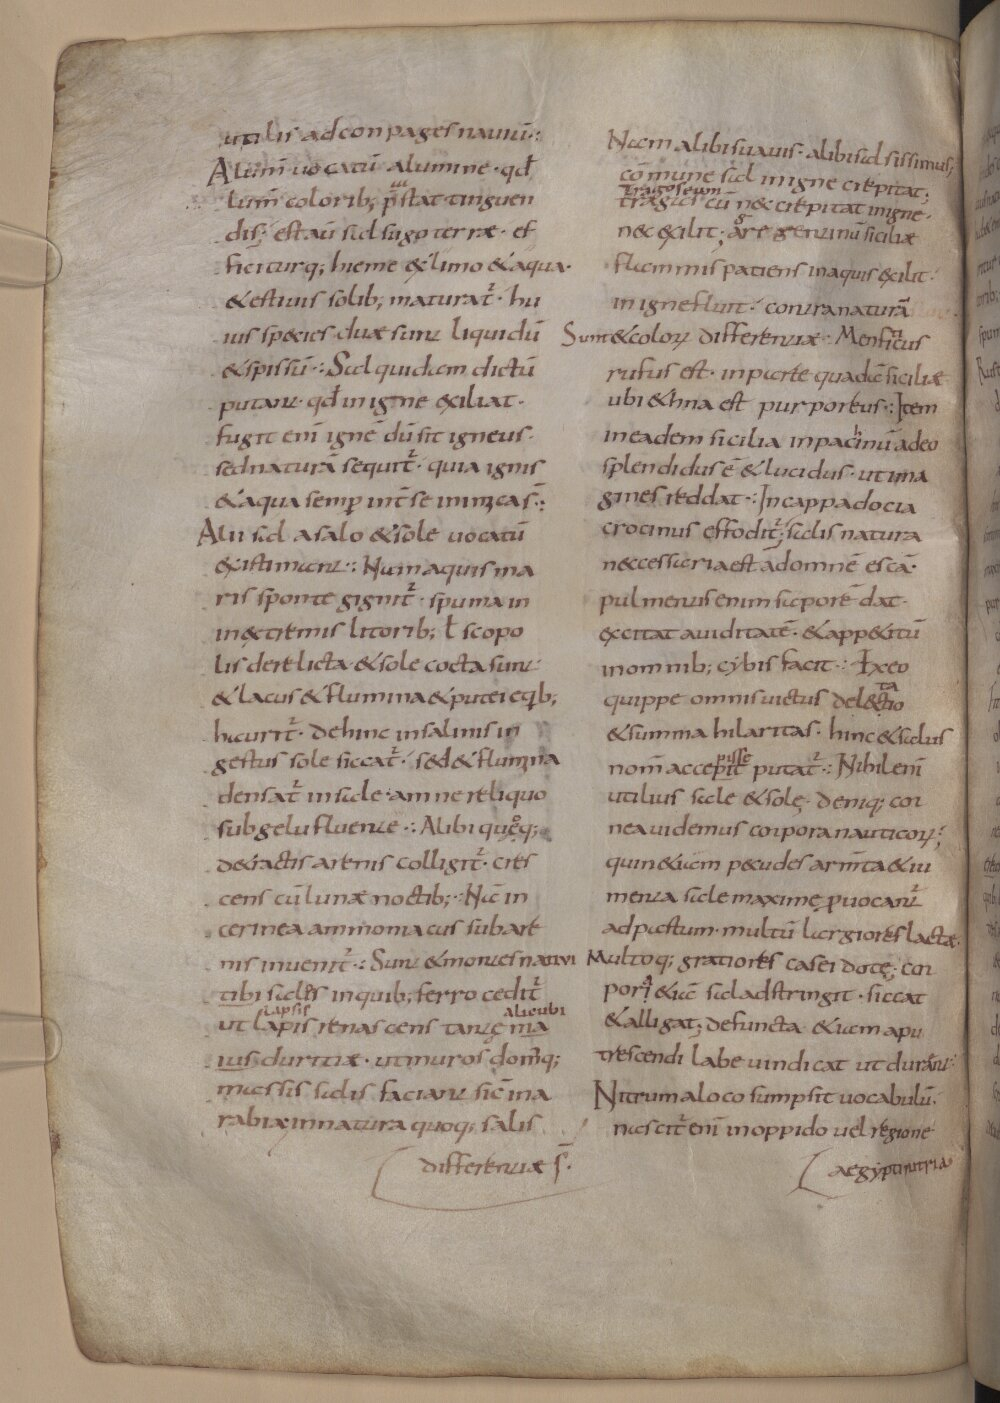 utilis ad conpages naviũ:·
Alum̃ vocatũ alumine · qđ
lum̃ colorib; p̃stat tinguen
dis; est aũt sicl sugo terræ · ef
ficiturq; hieme & limo & aqua ·
& estivis solib; maturat᷑ · hu
ius species duæ sunt liquidũ
& spissũ ·: Sal quidam dictũ
putant · qđ in igne exiliat ·
fugit enĩ ignẽ dũ sit igneus ·
sed naturã sequit᷑ · quia ignis
& aqua semp int̃ se inimicas ·:
Alii sal a salo & sole vocatũ
existimant ·: Nam aquis ma
ris sponte gignit᷑ · spuma in
in extremis litorib; ł scopo
lis derelicta & sole cocta sunt
& lacus & flumina & putei e qb;
haurit᷑ · dehinc in salinis in
gestus sole siccat᷑ · sed & flumina
densat᷑ in sale · amne reliquo
sub gelu fluente ·: Alibi quoq;
detractis arenis colligit᷑ · cres
cens cũ lunæ noctib; · Nã in
cerinea ammoniacus sub are
nis invenit᷑ ·: Sunt & montes nativi
tibi salis in quib; ferro cedit᷑
lapsis alicubi
ut lapis renascens tante ma
ius duritiæ · ut muros domq;
massis salis faciant sic̃ in a
rabia; in natura quoq; salis
differentiæ s̃ ·
Nam alibi suavis · alibi salsissimus;
cõmune sal in igne crepitat;
Tragoseum
tragicus cũ nec crepitat in igne ·
nec exilit; agrigentinũ siciliæ
flammis patiens in aquis exilit ·
in igne fluit · contra naturã
Sunt & colorꝝ differentiæ · Menfiticus
rufus est · in parte quadã siciliæ
ubi & hna est purporeus ·: Item
in eadem sicilia in pachinũ adeo
splendidus ẽ & lucidus · ut ima
gines reddat ·: In cappadocia
crocinus effodit᷑; salis natura
necessaria est ad omnẽ escã ·
pulmentis enim saporẽ dat ·
excitat aviditatẽ · & appetitũ
in omnib; cybis facit ·: Ex eo
quippe omnis victus delectatio
& summa hilaritas · hinc & salus
nom̃ accepisse putat᷑ ·: Nihil enĩ
utilius sale & sole · deniq; cor
nea videmus corpora nauticorꝝ;
quin etiam pecudes armt̃a & iu
menta sale maxime provocant᷑
ad pastum · multũ largiores lacte ·
Multoq; gratiores casei dote; cor
pora etiã sal adstringit · siccat
& alligat; defuncta etiam a pu
trescendi labe vindicat ut durent ·
Nitrum a loco sumpsit vocabulũ ·
nascit᷑ enĩ in oppido vel regione
aegypti nitria